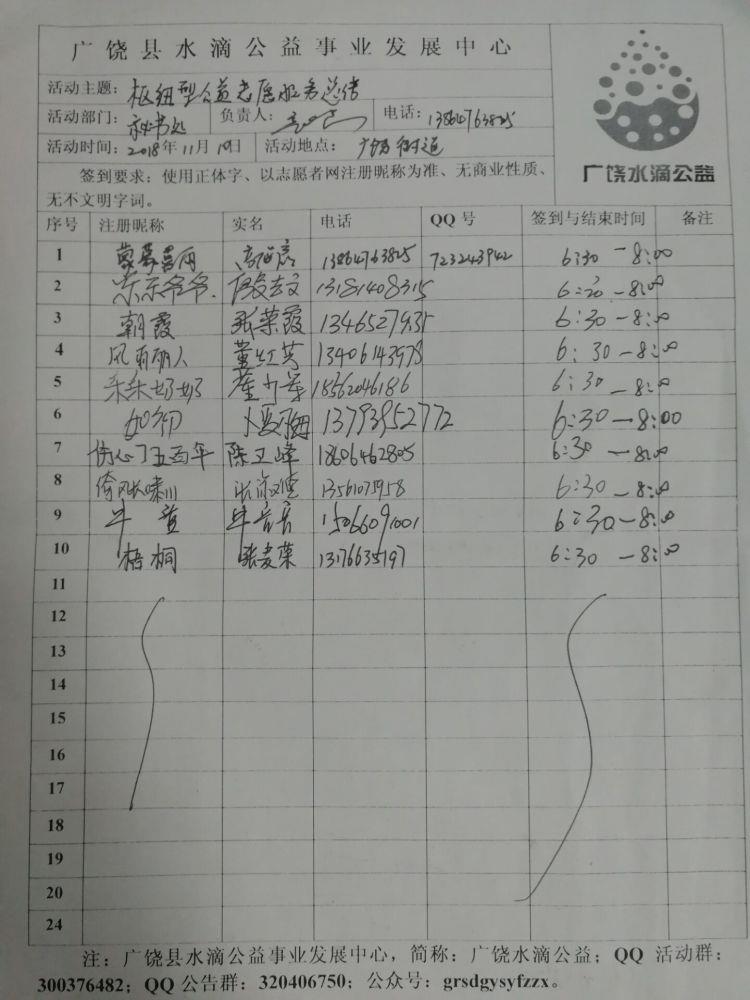 广饶县水滴公益事业发展中心
活动主题：枢纽型公益志愿服务总结
活动部门：秘书处 负责人： 电话：13864763825
活动时间：2018年11月10日 活动地点：广饶街道
广饶水滴公益
签到要求：使用正体字、以志愿者网注册昵称为准、无商业性质、
无不文明字词。
序号 注册昵称 实名 电话 QQ 号 签到与结束时间 备注
1 13864763825 723243942 6:30-8:00
2 东东爷爷. 13181408315 6:20-8:00
3 朝霞 张荣霞 6:30-8:00
4 董红英 13406143978 6:30-8:00
5 奶奶 18562046186 6:30-8:00
6 如初 13793952772 6:30-8:00
7 伤心了五百年 陈卫峰 18606462805 6:30-8:00
8 6:30-8:00
9 15066091001 6:30-8:00
10 梧桐 张麦荣 13176635197 6:30-8:00
11
12
13
14
15
16
17
18
19
20
24
注：广饶县水滴公益事业发展中心，简称：广饶水滴公益；QQ 活动群：
300376482；QQ 公告群：320406750；公众号：grsdgysyfzzx。